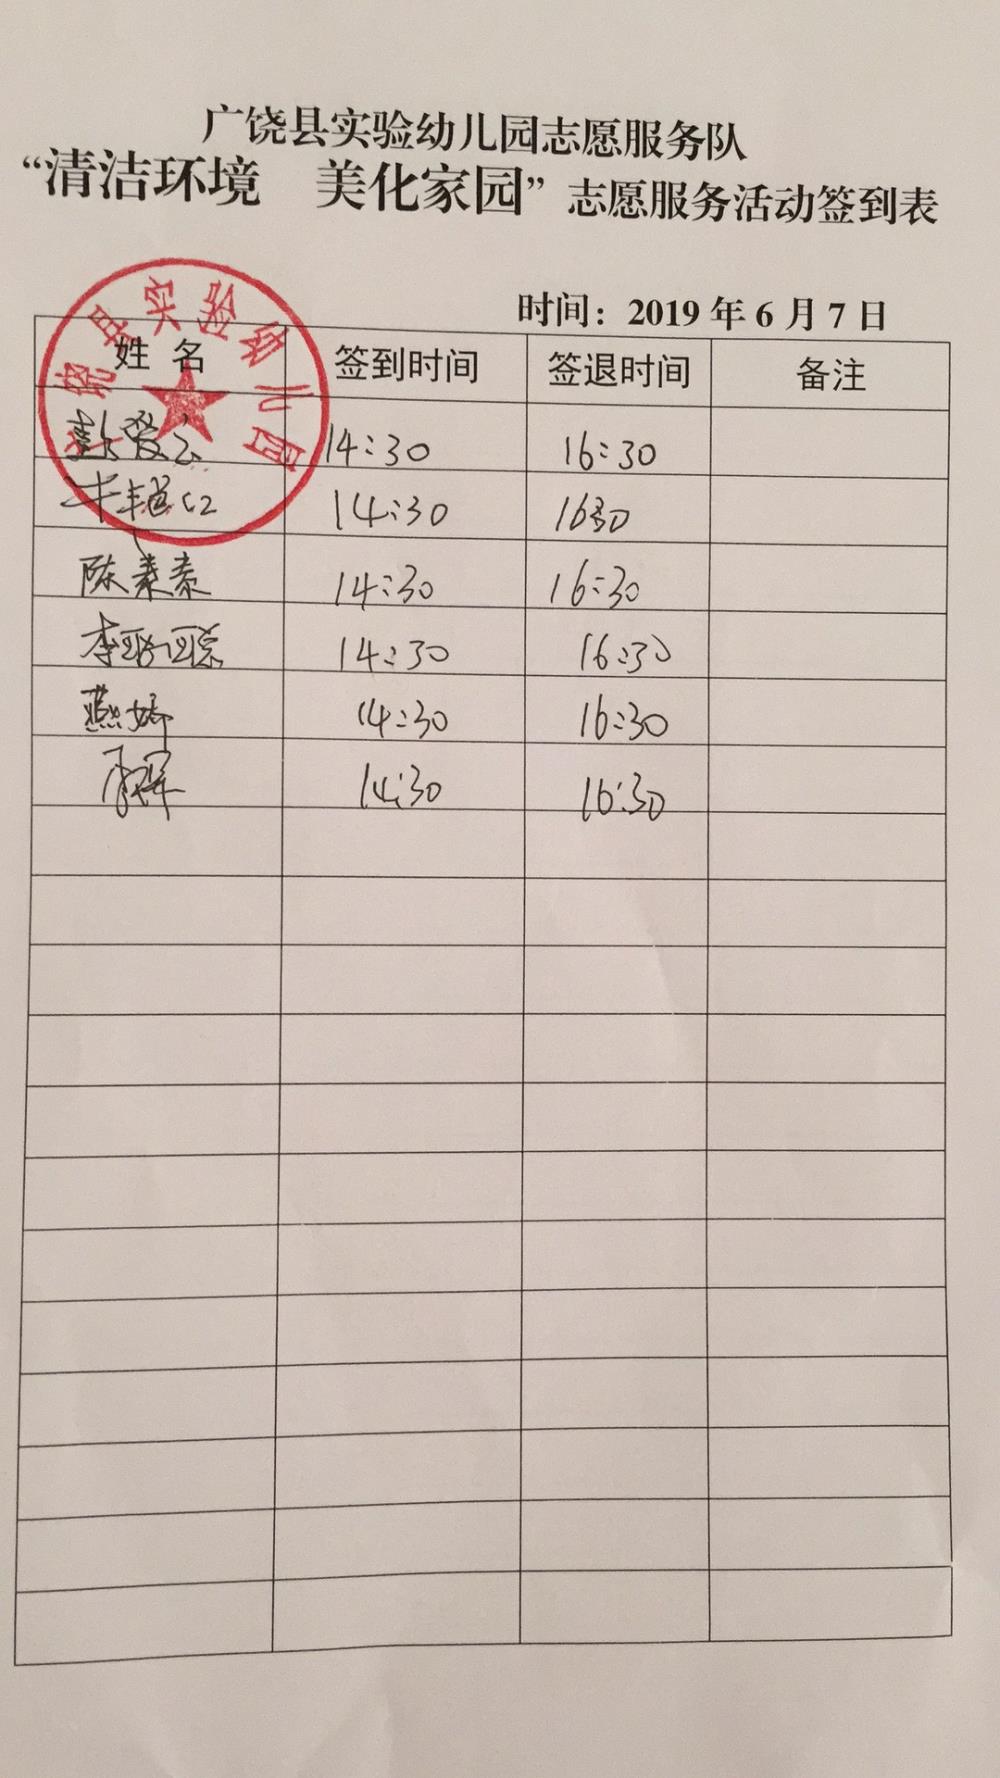 广饶县实验幼儿园志愿服务队
“清洁环境 美化家园”志愿服务活动签到表
时间：2019年6月7日
姓 名 签到时间 签退时间 备注
饶县实验幼儿园
彭爱云 14:30 16:30
14:30 16:30
陈素素 14:30 16:30
李 14:30 16:30
燕婷 14:30 16:30
李 14:30 16:30